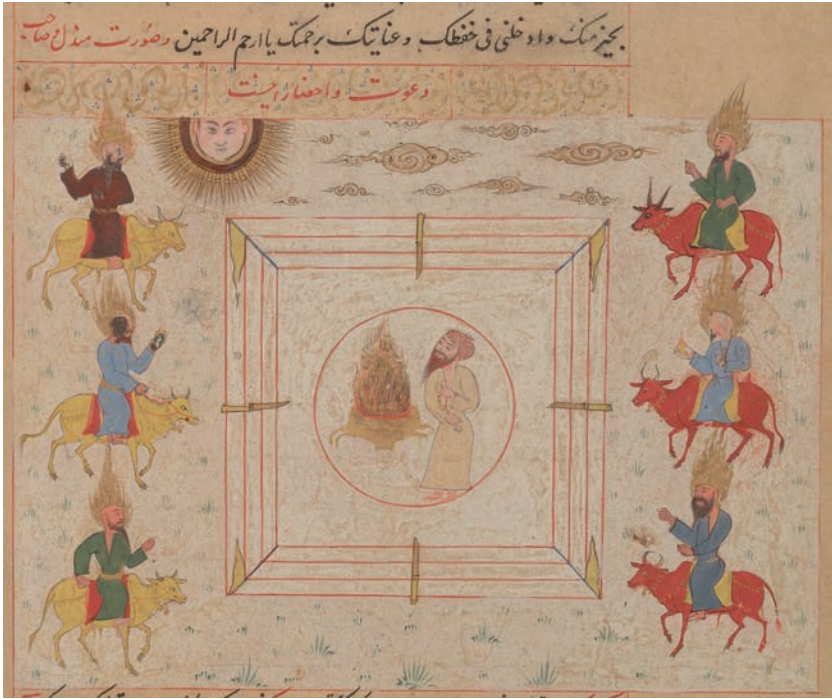 بخیر منک وادخلنی فی حفظک وعنایتک برحمتک یا ارحم الراحمین وصورت مندل وصاحب
دعوت واحضار اینست